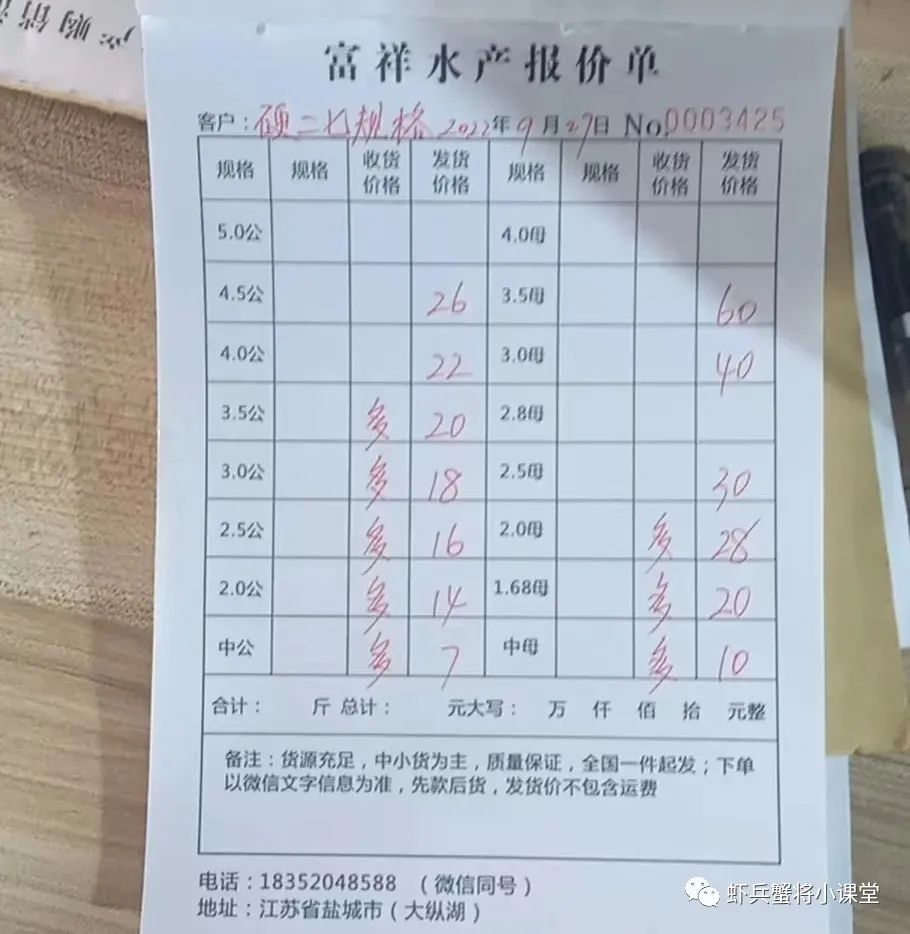 产购销
富祥水产报价单
客户：硬二七规格 2022年9月27日 No.0003425
规格 规格 收货价格 发货价格 规格 规格 收货价格 发货价格
5.0公 4.0母
4.5公 26 3.5母 60
4.0公 22 3.0母 40
3.5公 多 20 2.8母
3.0公 多 18 2.5母 30
2.5公 多 16 2.0母 多 28
2.0公 多 14 1.68母 多 20
中公 多 7 中母 多 10
合计： 斤 总计： 元大写： 万 仟 佰 拾 元整
备注：货源充足，中小货为主，质量保证，全国一件起发；下单
以微信文字信息为准，先款后货，发货价不包含运费
电话：18352048588 （微信同号）
地址：江苏省盐城市（大纵湖）
虾兵蟹将小课堂